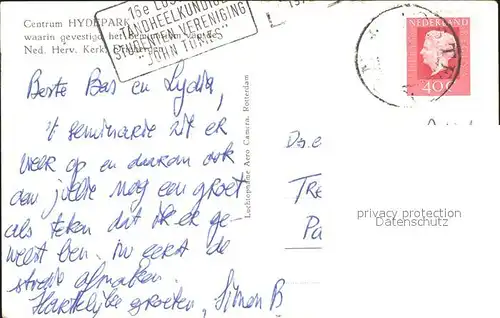 Centrum HYDEPARK
waarin gevestigd het Seminarium van de
Ned. Herv. Kerk,
16e LUS
TANDHEELKUNDIGE
STUDENTEN VERENIGING
"JOHN TOMES"
NEDERLAND
40 c
Beste Bas en Lydia,
't seminarie zit er
weer op en daarom ook
dan jullie nog een groet
als teken dat ik er ge-
weest ben. Nu eerst de
stress afmaken.
Hartelijke groeten, Simon B
Luchtopname Aero Camera, Rotterdam
Ds.
TRE
Pa
privacy protection
Datenschutz